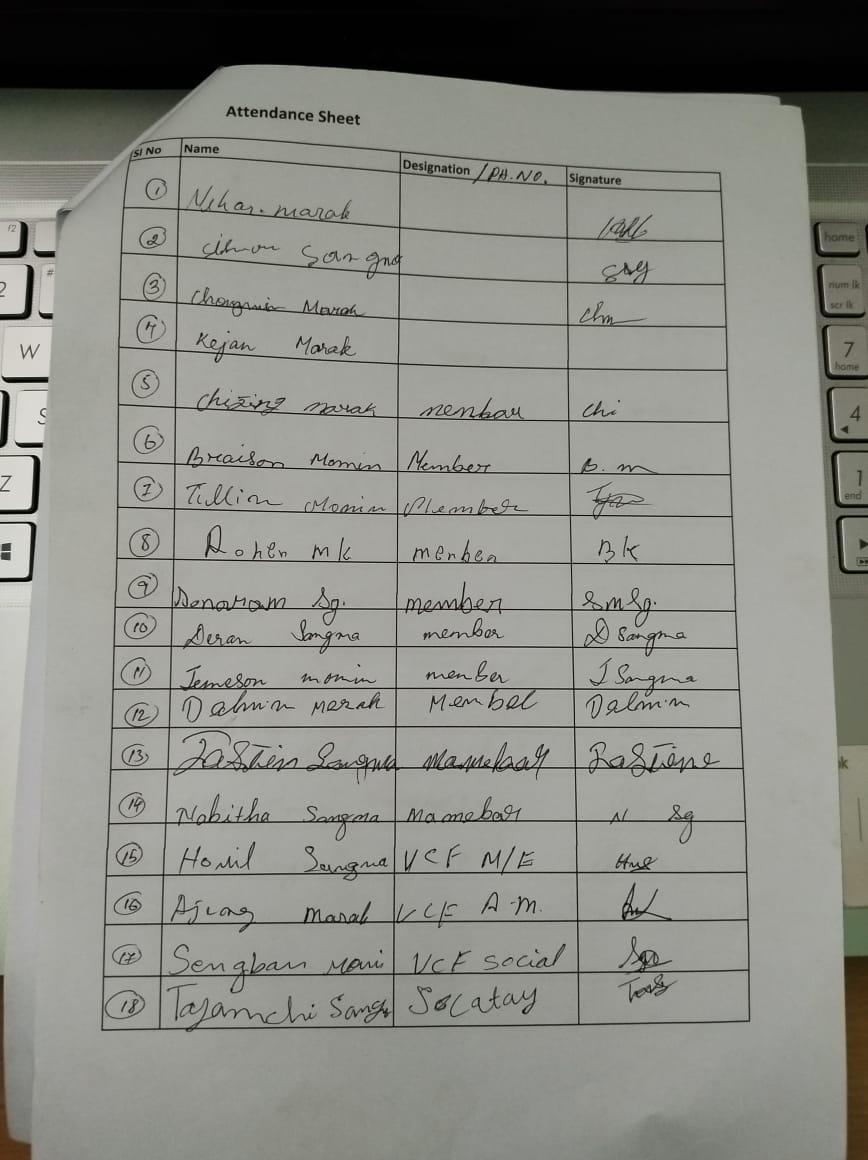 Attendance Sheet
Sl No Name Designation /PH.NO. Signature
1 Nehar. marak
2 Simon Sangma SNG
3 Chongmin Marak Chm
4 Kejan Marak
5 Chizing marak nenbar Chi
6 Breaison Momin Member B. m
7 Tillin Momin Member
8 Rohen mk menben BK
9 Denaram Sg. member SmSg.
10 Deran Sangma member D Sangma
11 Jemeson momin menber J Sangma
12 Dalmin Merak Membel Dalmin
13 Jastien Sangma Jastiene
14 Nabitha Sangma Mamebar N Sg
15 Honil Sangma VCF M/E
16 Ajrang Marak VCF A.M.
17 Sengban Momi VCF social
18 Tajamchi Sang Secatay